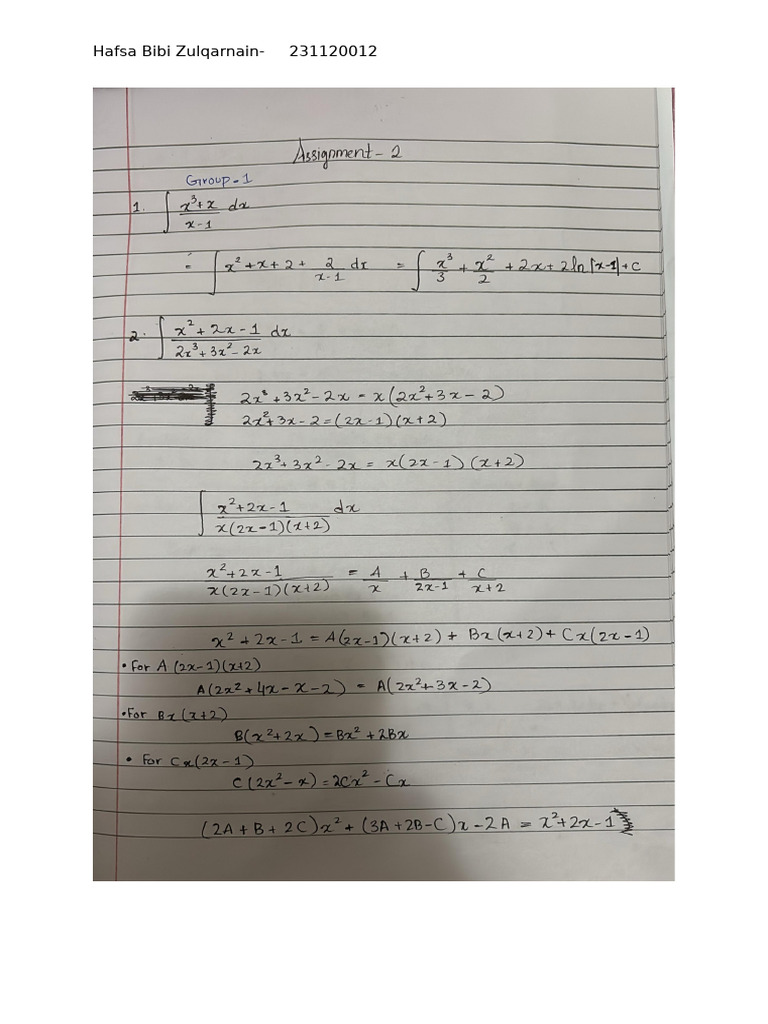 Hafsa Bibi Zulqarnain- 231120012
Assignment - 2
Group - 1
1. ∫ (x³+x)/(x-1) dx
= ∫ x² + x + 2 + 2/(x-1) dx = ∫ x³/3 + x²/2 + 2x + 2 ln |x-1| + C
2. ∫ (x² + 2x - 1)/(2x³ + 3x² - 2x) dx
2x³ + 3x² - 2x = x(2x² + 3x - 2)
2x² + 3x - 2 = (2x - 1)(x + 2)
2x³ + 3x² - 2x = x(2x - 1)(x + 2)
∫ (x² + 2x - 1)/(x(2x - 1)(x + 2)) dx
(x² + 2x - 1)/(x(2x - 1)(x + 2)) = A/x + B/(2x - 1) + C/(x + 2)
x² + 2x - 1 = A(2x - 1)(x + 2) + Bx(x + 2) + Cx(2x - 1)
• For A (2x - 1)(x + 2)
A(2x² + 4x - x - 2) = A(2x² + 3x - 2)
• For Bx(x + 2)
B(x² + 2x) = Bx² + 2Bx
• For Cx(2x - 1)
C(2x² - x) = 2Cx² - Cx
(2A + B + 2C)x² + (3A + 2B - C)x - 2A = x² + 2x - 1